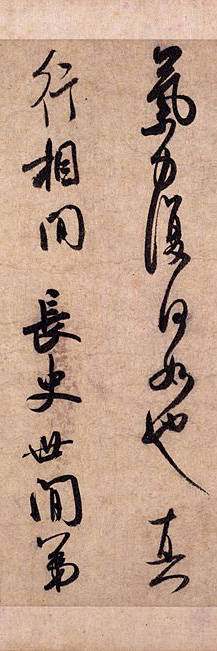 氣力復何如也 真
行相間 長史世間第